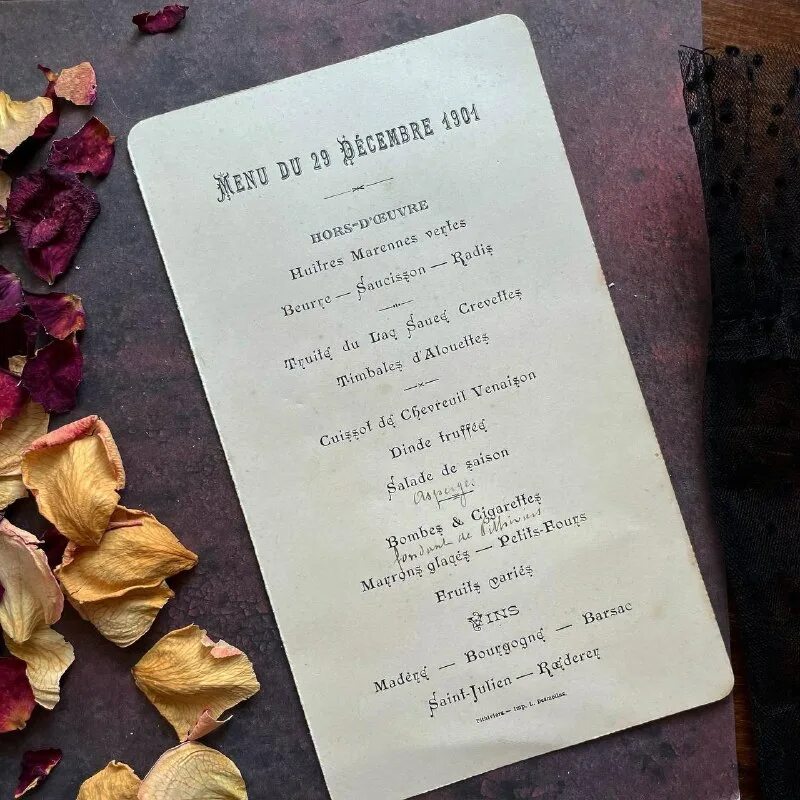 MENU DU 29 DÉCEMBRE 1901
HORS-D'ŒUVRE
Huîtres Marennes vertes
Beurre — Saucisson — Radis
Truite du Lac Sauce Crevettes
Timbales d'Alouettes
Cuissot de Chevreuil Venaison
Dinde truffée
Salade de saison
Asperges
Bombes & Cigarettes
fondant de Pithiviers
Marrons glacés — Petits-Fours
Fruits variés
VINS
Madère — Bourgogne — Barsac
Saint-Julien — Rœderer
Pithiviers — Imp. L.